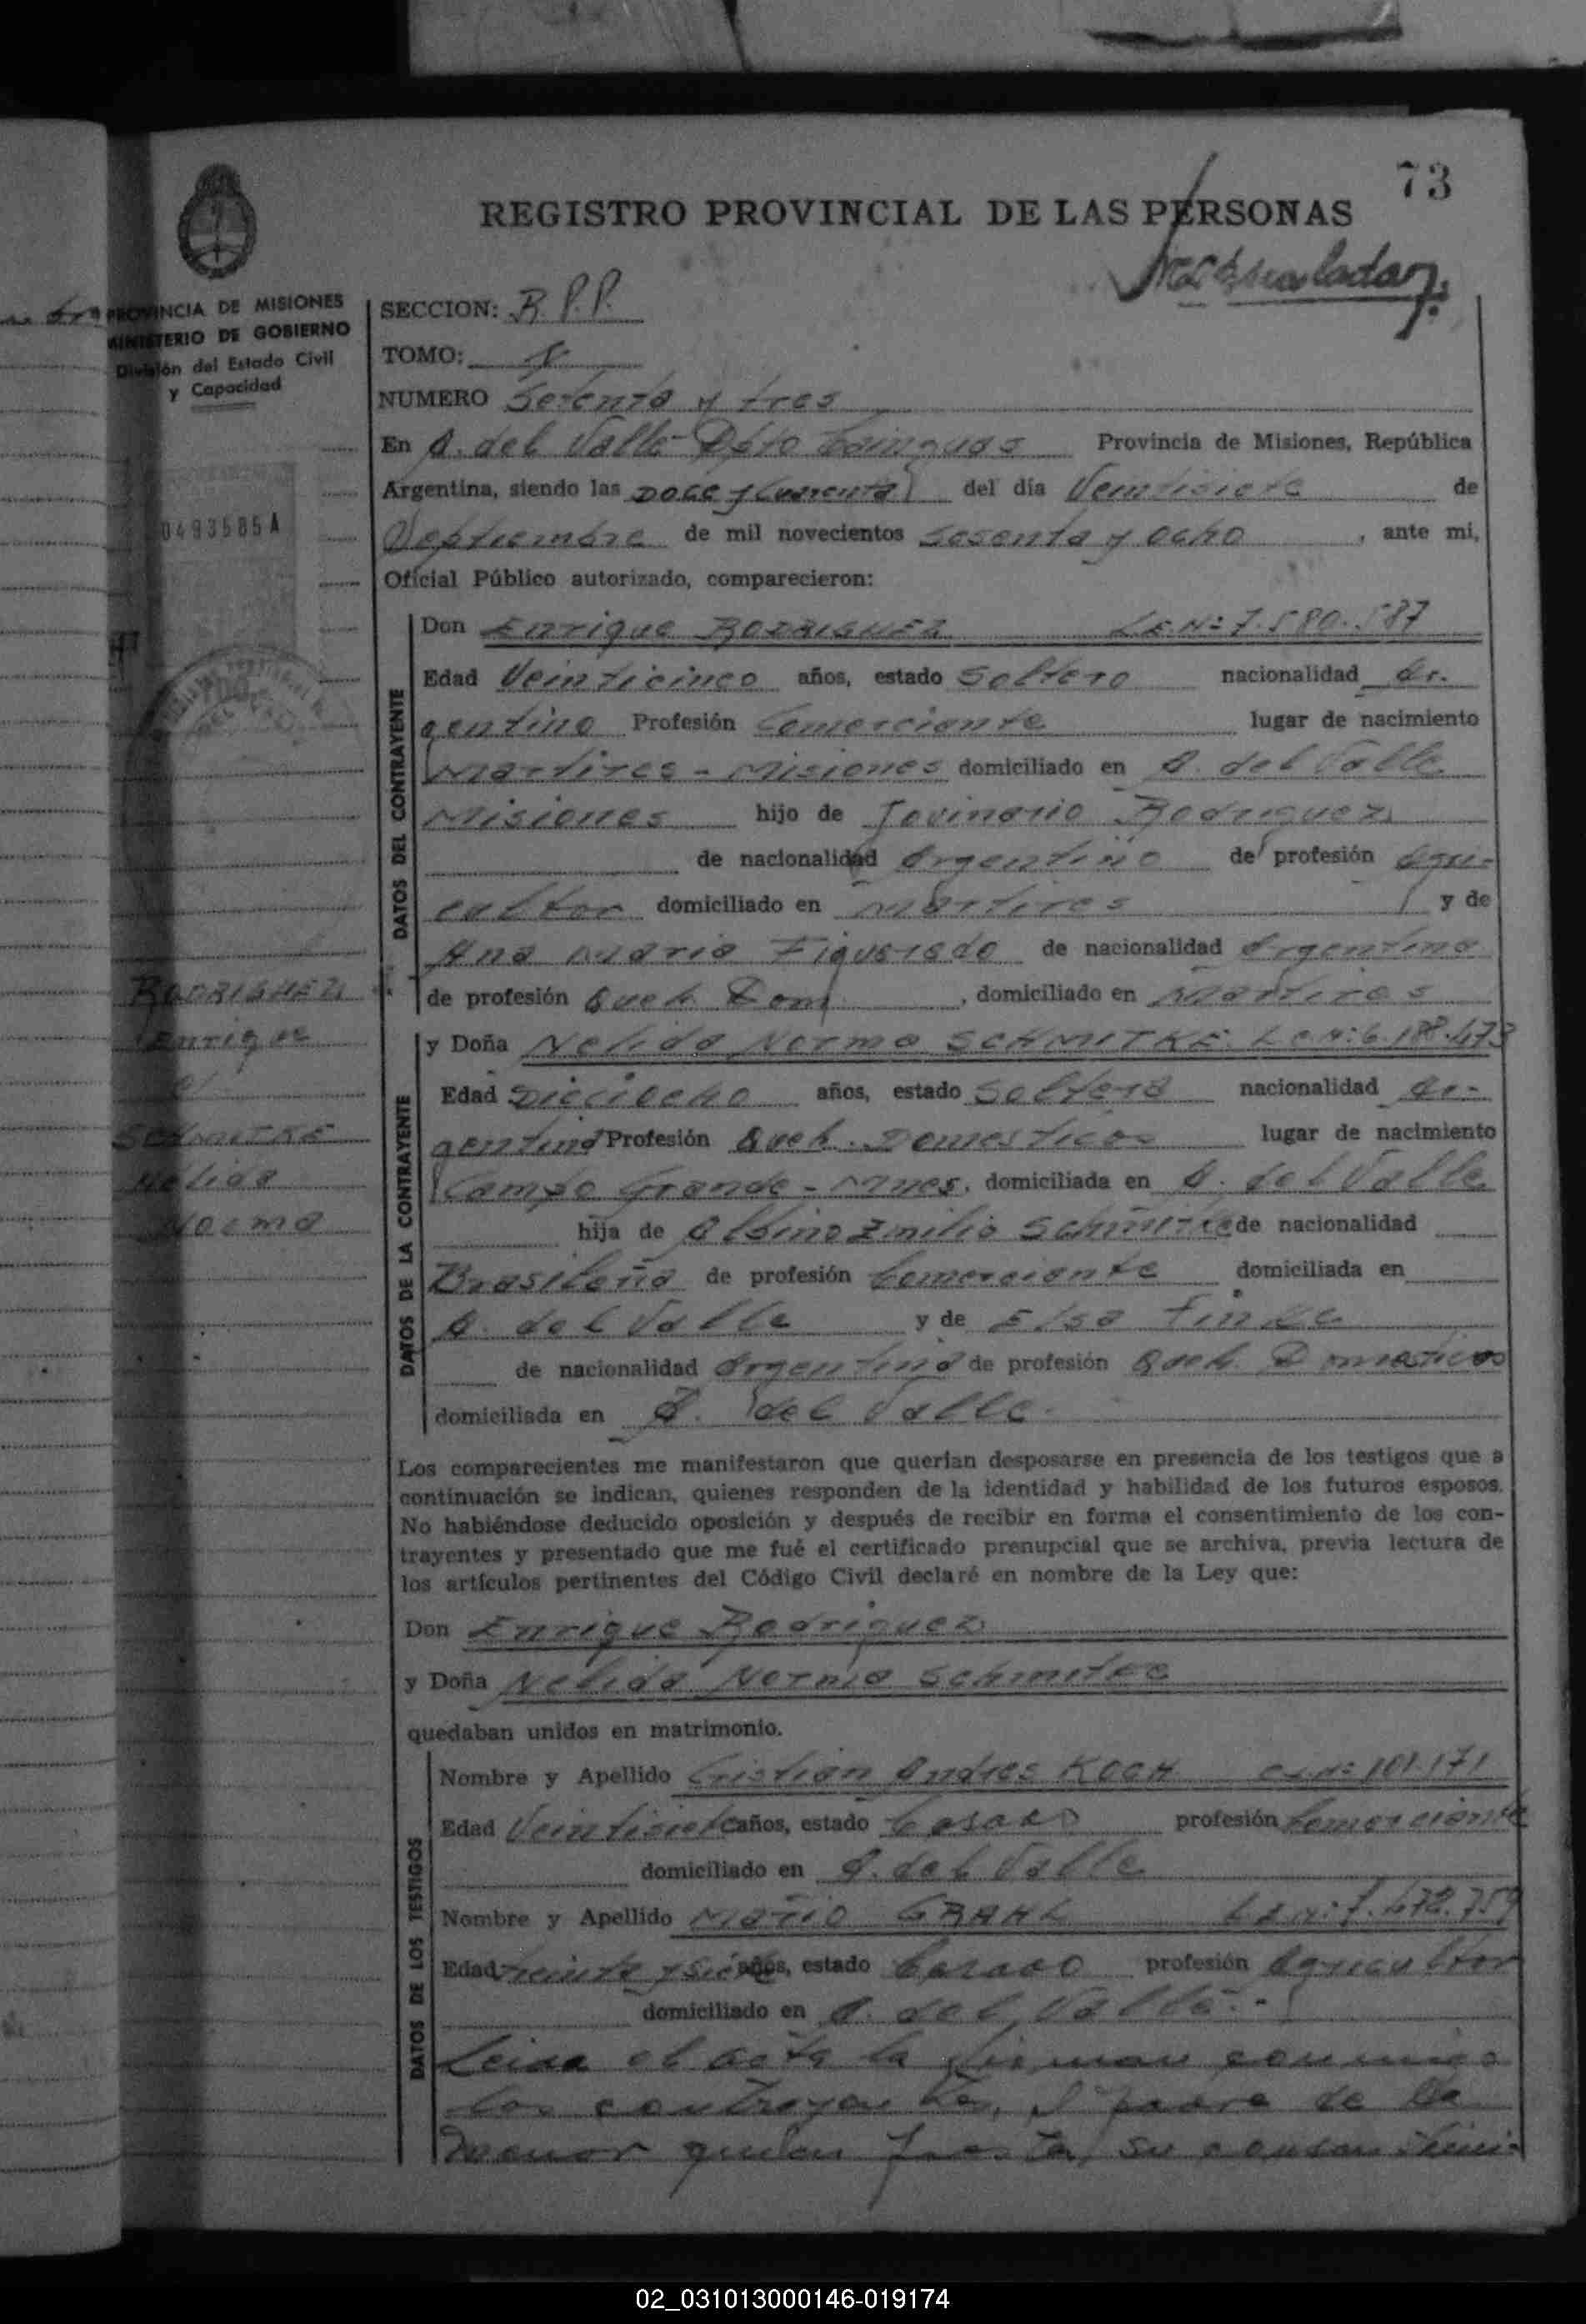 73
REGISTRO PROVINCIAL DE LAS PERSONAS
PROVINCIA DE MISIONES
MINISTERIO DE GOBIERNO
División del Estado Civil
y Capacidad
0493585A
SECCION: R.P.P.
TOMO:
NUMERO Setenta y tres
En A. del Valle Dpto Cainguas Provincia de Misiones, República
Argentina, siendo las DOCE y Cuarenta del día Veintisiete de
Septiembre de mil novecientos sesenta y ocho, ante mi,
Oficial Público autorizado, comparecieron:
DATOS DEL CONTRAYENTE
Don Enrique RODRIGUEZ L.E.Nº 7.580.587
Edad Veinticinco años, estado Soltero nacionalidad Ar-
gentino Profesión Comerciante lugar de nacimiento
Martires - Misiones domiciliado en A. del Valle
Misiones hijo de Jovinario Rodriguez
de nacionalidad Argentino de profesión Agri-
cultor domiciliado en Martires y de
Ana Maria Figueredo de nacionalidad Argentina
de profesión Queh. Dom, domiciliado en Martires
RODRIGUEZ
Enrique
c/
SCHMITKE
Nelida
Norma
DATOS DE LA CONTRAYENTE
y Doña Nelida Norma SCHMITKE. L.C.Nº 6.188.473
Edad Dieciocho años, estado Soltera nacionalidad Ar-
gentina Profesión Queh. Domesticos lugar de nacimiento
Campo Grande - Mnes. domiciliada en A. del Valle
hija de Albino Emilio Schmitke de nacionalidad
Brasileña de profesión Comerciante domiciliada en
A. del Valle y de Elsa Finke
de nacionalidad Argentina de profesión Queh. Domesticos
domiciliada en A. del Valle.
Los comparecientes me manifestaron que querían desposarse en presencia de los testigos que a
continuación se indican, quienes responden de la identidad y habilidad de los futuros esposos.
No habiéndose deducido oposición y después de recibir en forma el consentimiento de los con-
trayentes y presentado que me fué el certificado prenupcial que se archiva, previa lectura de
los artículos pertinentes del Código Civil declaré en nombre de la Ley que:
Don Enrique Rodriguez
y Doña Nelida Norma Schmitke
quedaban unidos en matrimonio.
DATOS DE LOS TESTIGOS
Nombre y Apellido Cristian Andres KOCH C.I.Nº 101.171
Edad Veintisiete años, estado Casado profesión Comerciante
domiciliado en A. del Valle
Nombre y Apellido Mario GRAHL L.E.Nº 7.472.759
Edad y siete años, estado Casado profesión Agricultor
domiciliado en A. del Valle.-
Leida el acta la firman conmigo
los contrayentes, el padre de la
menor quien presta su consentimi-
02_031013000146-019174